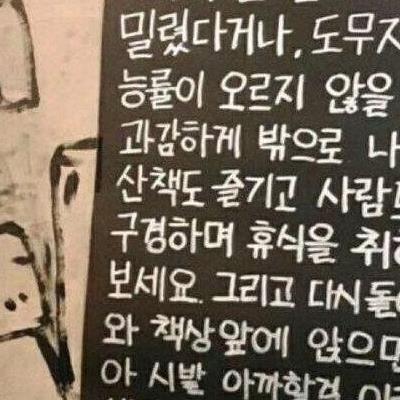 밀렸다거나, 도무지
능률이 오르지 않을
과감하게 밖으로 나
산책도 즐기고 사람
구경하며 휴식을 취
보세요. 그리고 다시 돌
와 책상앞에 앉으면
아 시발 아까할걸